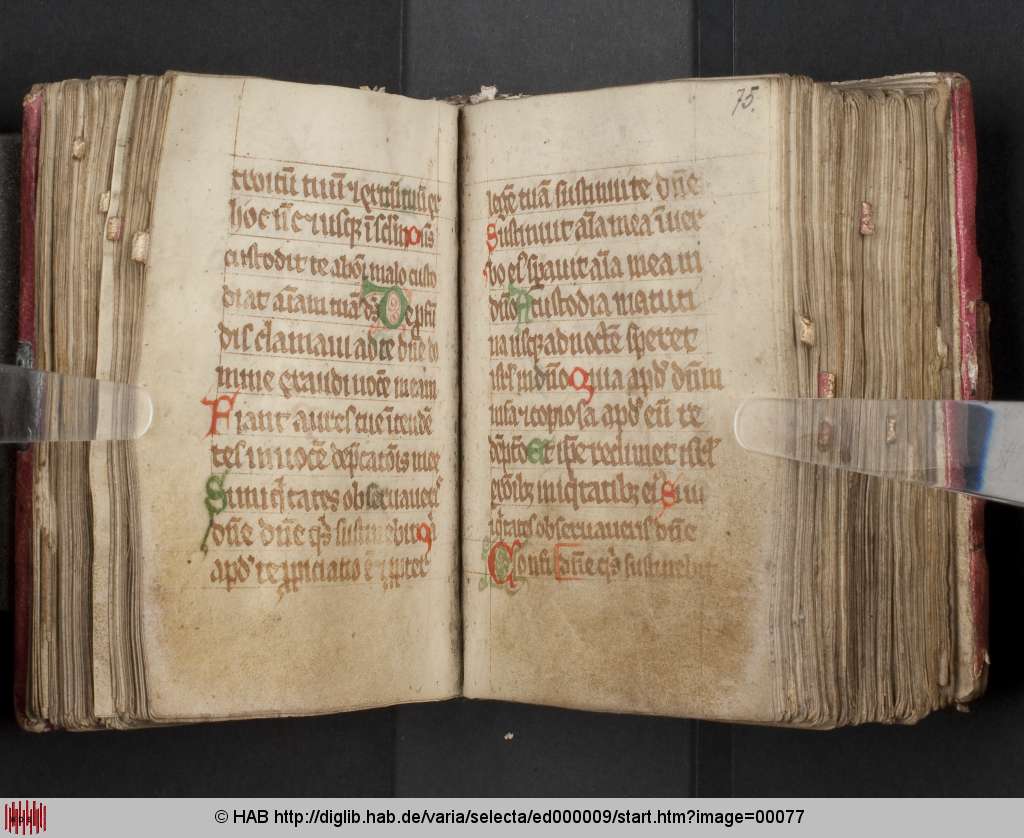 troitū tuū ⁊ exitū tuū ex
hoc nc̄ ⁊ usq; ī sclm̄ Dn̄s
custodit te ab oī malo custo
diat aīam tuā dn̄s De ꝓfū
dis clamaui ad te dn̄e do
mine exaudi uocē meam
Fiant aures tue ītendē
tes in uocē dep̄catōis mee
Si iniq̄tates obseruaueris
dn̄e dn̄e q̄s sustinebit Q̄
apd̄ te ꝓpiciatio ē ⁊ ꝓpter
75.
legē tuā sustinui te dn̄e
Sustinuit aīa mea ī uer
bo eiꝰ sꝑauit aīa mea in
dn̄o A custodia matuti
na usq; ad noctē speret
isrl̄ in dn̄o Quia apd̄ dn̄m
mīa ⁊ copiosa apd̄ eū re
dēptō Et ip̄e redimet isrl̄
ex oīb; iniq̄tatib; eiꝰ Si in
iq̄tates obseruaueris dn̄e
dn̄e q̄s sustinebit
© HAB http://diglib.hab.de/varia/selecta/ed000009/start.htm?image=00077